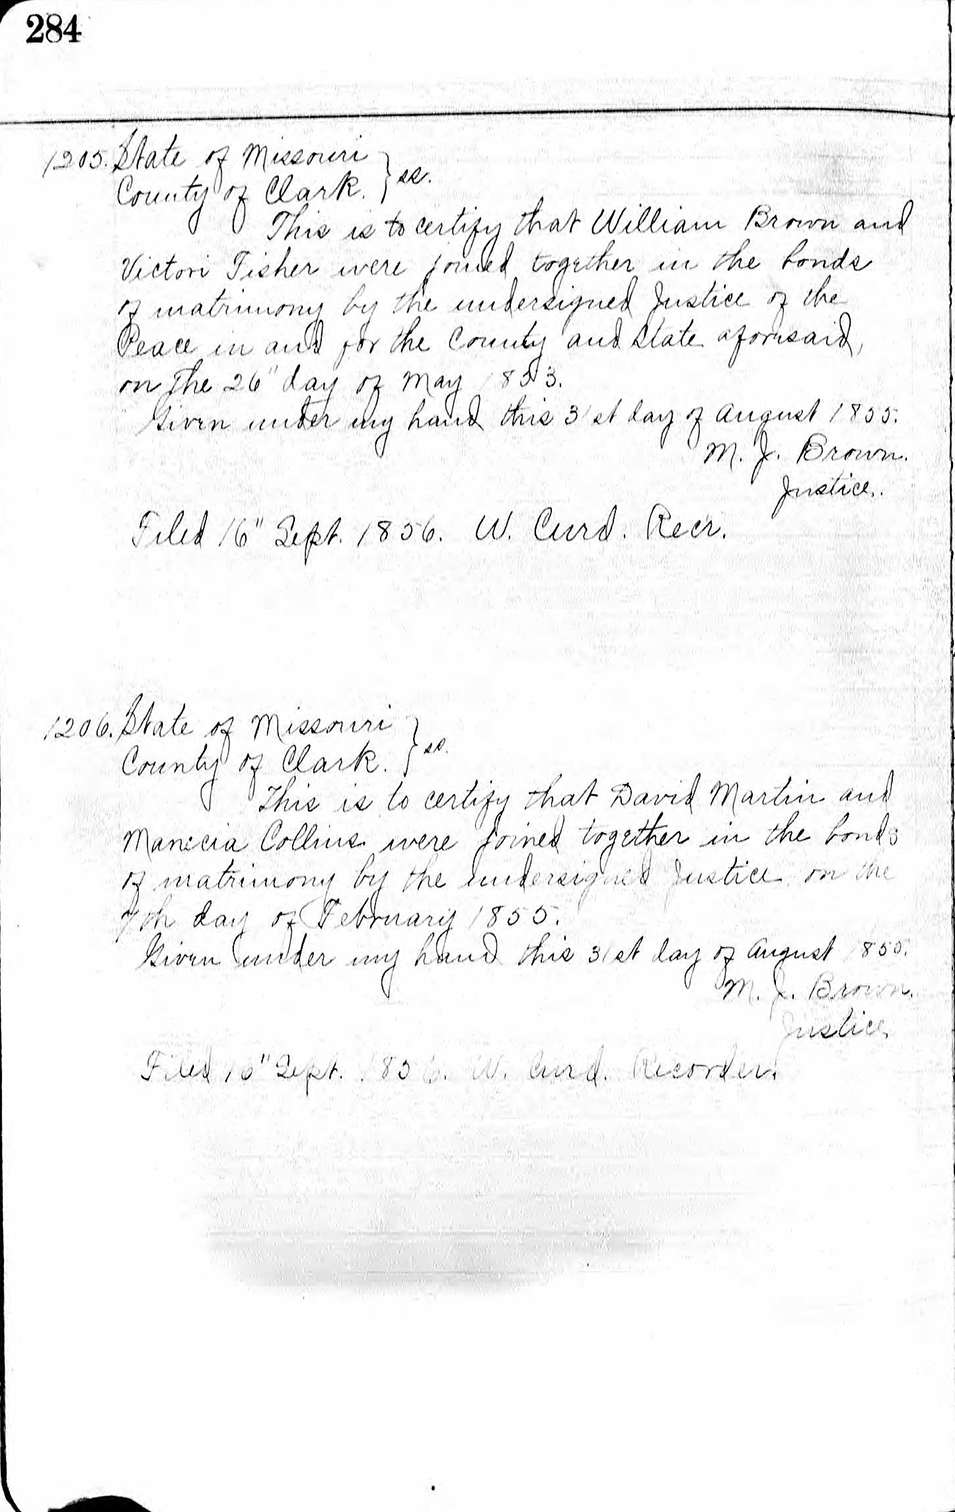 284
1205. State of Missouri } ss.
County of Clark.
This is to certify that William Brown and
Victori Fisher were joined together in the bonds
of matrimony by the undersigned Justice of the
Peace in and for the County and State aforesaid,
on the 26" day of May 1853.
Given under my hand this 31st day of August 1855.
M. J. Brown.
Justice.
Filed 16" Sept. 1856. W. Curd. Recr.
1206. State of Missouri } ss.
County of Clark.
This is to certify that David Martin and
Manecia Collins were joined together in the bonds
of matrimony by the undersigned Justice on the
7th day of February 1855.
Given under my hand this 31st day of August 1855.
M. J. Brown.
Justice
Filed 16" Sept. 1856. W. Curd. Recorder.